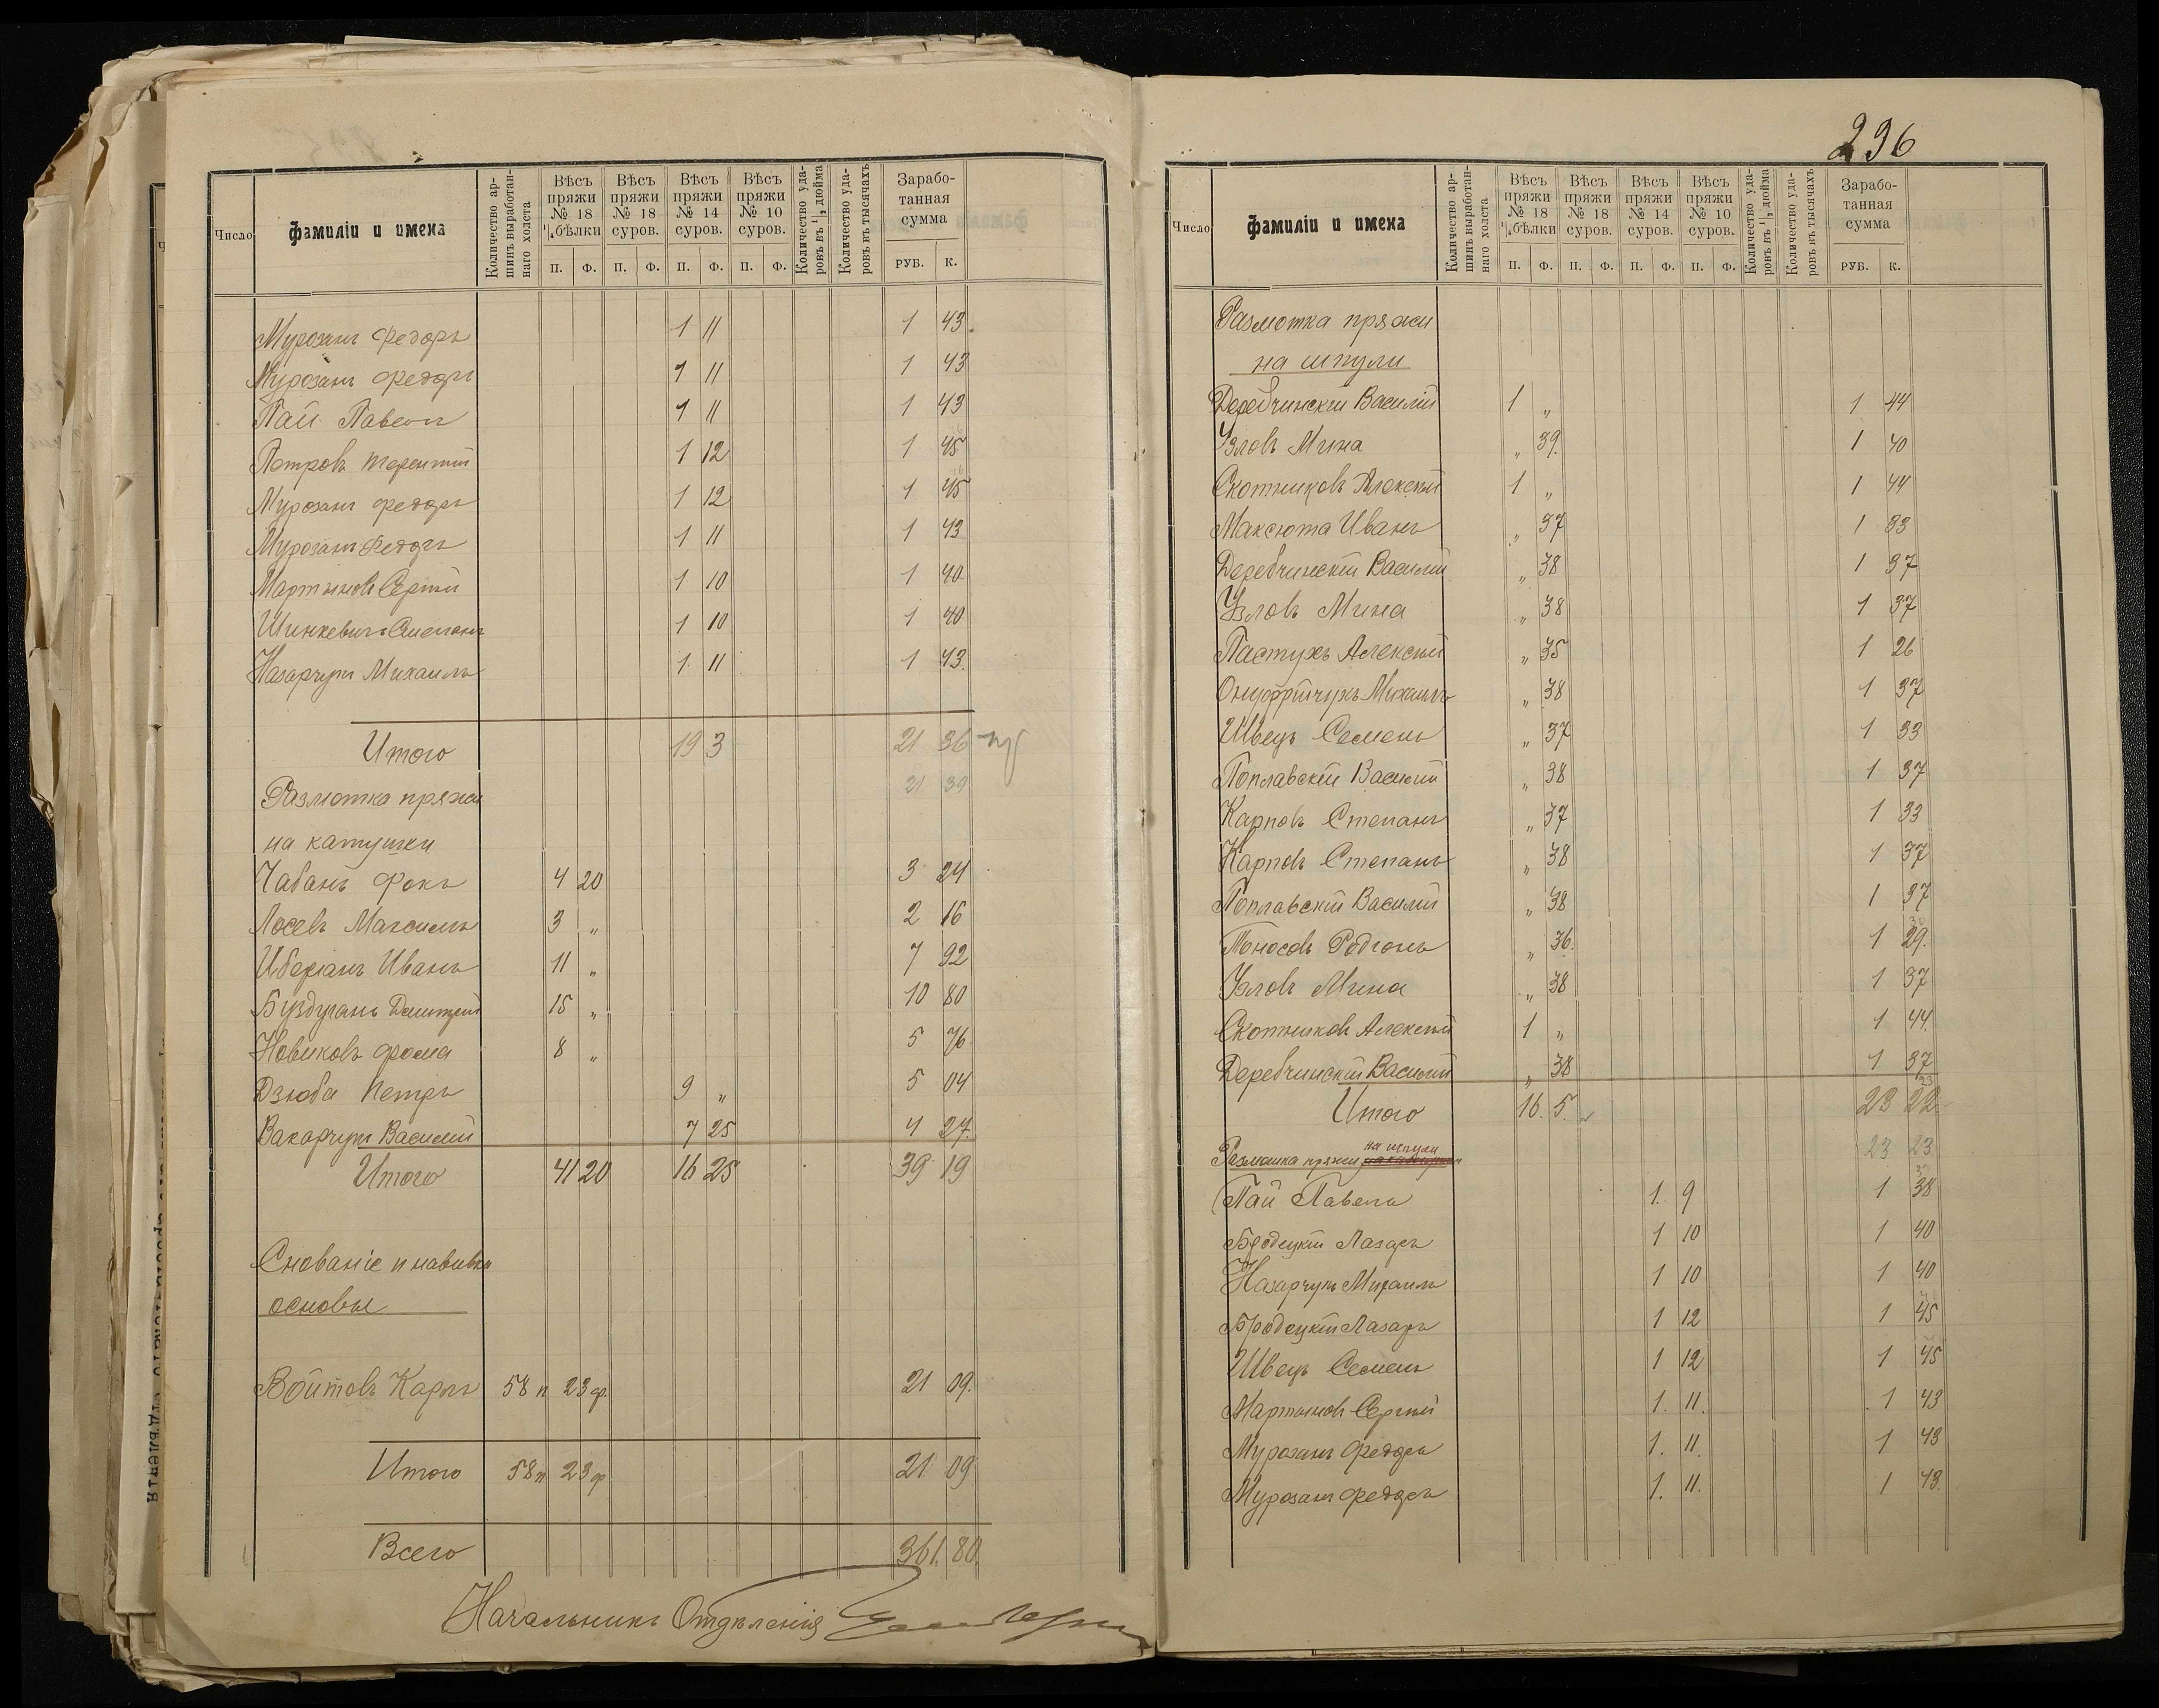 Число
фамилiи и имена
Количество ар-
шинъ выработан-
наго холста
Вѣсъ пряжи № 18 ¼ бѣлки
Вѣсъ пряжи № 18 суров.
Вѣсъ пряжи № 14 суров.
Вѣсъ пряжи № 10 суров.
Количество уда-
ровъ въ ¼ дюйма
Количество уда-
ровъ въ тысячахъ
Зарабо-
танная
сумма
П. Ф. П. Ф. П. Ф. П. Ф. РУБ. К.
Мурозанъ Федоръ 1 11 1 43.
Мурозанъ Федоръ 1 11 1 43
Пай Павелъ 1 11 1 43
Петровъ Терентій 1 12 1 45
Мурозанъ Федоръ 1 12 1 45
Мурозанъ Федоръ 1 11 1 43
Мартыновъ Сергѣй 1 10 1 40
Шинкевичъ Степанъ 1 10 1 40
Назарчукъ Михаилъ 1 11 1 43.
Итого 19 3 21 36
21 39
Размотка пряжи
на катушки
Чабанъ Фока 4 20 3 24
Лосевъ Максимъ 3 „ 2 16
Иберянъ Иванъ 11 „ 7 92
Буздуганъ Дмитрій 15 „ 10 80
Новиковъ Фома 8 „ 5 76
Дзюба Петръ 9 „ 5 04
Вакарчукъ Василій 7 25 4 27
Итого 41 20 16 25 39 19
Снованіе и навивка
основы
Войтовъ Карпъ 58 п 23 ф. 21 09.
Итого 58 п 23 ф 21 09
Всего 361. 80.
Начальникъ Отдѣленія
236
Число
фамилiи и имена
Количество ар-
шинъ выработан-
наго холста
Вѣсъ пряжи № 18 ¼ бѣлки
Вѣсъ пряжи № 18 суров.
Вѣсъ пряжи № 14 суров.
Вѣсъ пряжи № 10 суров.
Количество уда-
ровъ въ ¼ дюйма
Количество уда-
ровъ въ тысячахъ
Зарабо-
танная
сумма
П. Ф. П. Ф. П. Ф. П. Ф. РУБ. К.
Размотка пряжи
на шпули
Деребчинскій Василій 1 „ 1 44
Узловъ Мина „ 39. 1 40
Скотниковъ Алексѣй 1 „ 1 44
Максюта Иванъ „ 37 1 33
Деребчинскій Василій „ 38 1 37
Узловъ Мина „ 38 1 37
Пастухъ Алексѣй „ 35 1 26
Онуфрійчукъ Михаилъ „ 38 1 37
Швецъ Семенъ „ 37 1 33
Поплавскій Василій „ 38 1 37
Карповъ Степанъ „ 37 1 33
Карповъ Степанъ „ 38 1 37
Поплавскій Василій „ 38 1 37
Тоносовъ Родіонъ „ 36. 1 29.
Узловъ Мина „ 38 1 37
Скотниковъ Алексѣй 1 „ 1 44.
Деребчинскій Василій „ 38 1 37
Итого 16. 5. 23 22
Размотка пряжи на шпули 23 23
Пай Павелъ 1. 9 1 38
Бродецкій Лазарь 1 10 1 40
Назарчукъ Михаилъ 1 10 1 40
Бродецкій Лазарь 1 12 1 45
Швецъ Семенъ 1 12 1 45
Мартыновъ Сергѣй 1. 11. 1 43
Мурозанъ Федоръ 1. 11. 1 43
Мурозанъ Федоръ 1. 11. 1 43.